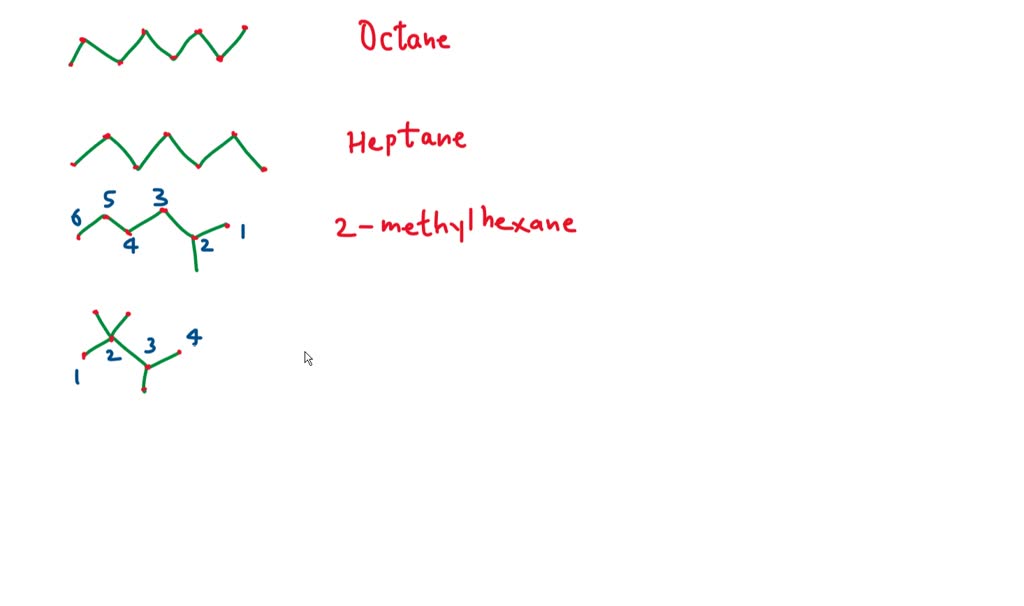 Octane
Heptane
6 5 4 3 2 1
2-methylhexane
1 2 3 4